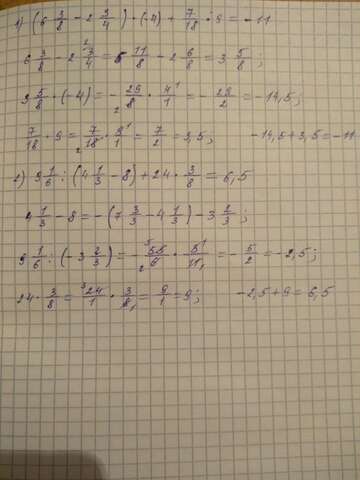 1) (6 3/8 - 2 3/4) · (-4) + 7/18 · 9 = -11
6 3/8 - 2 3/4 = 5 11/8 - 2 6/8 = 3 5/8;
3 5/8 · (-4) = - 29/8 · 4/1 = - 29/2 = -14,5;
7/18 · 9 = 7/18 · 9/1 = 7/2 = 3,5; -14,5+3,5=-11
2) 9 1/6 : (4 1/3 - 8) + 24 · 3/8 = 6,5
4 1/3 - 8 = -(7 3/3 - 4 1/3) - 3 2/3;
9 1/6 : (-3 2/3) = - 55/6 · 3/11 = - 5/2 = -2,5;
24 · 3/8 = 24/1 · 3/8 = 9/1 = 9; -2,5+9 = 6,5